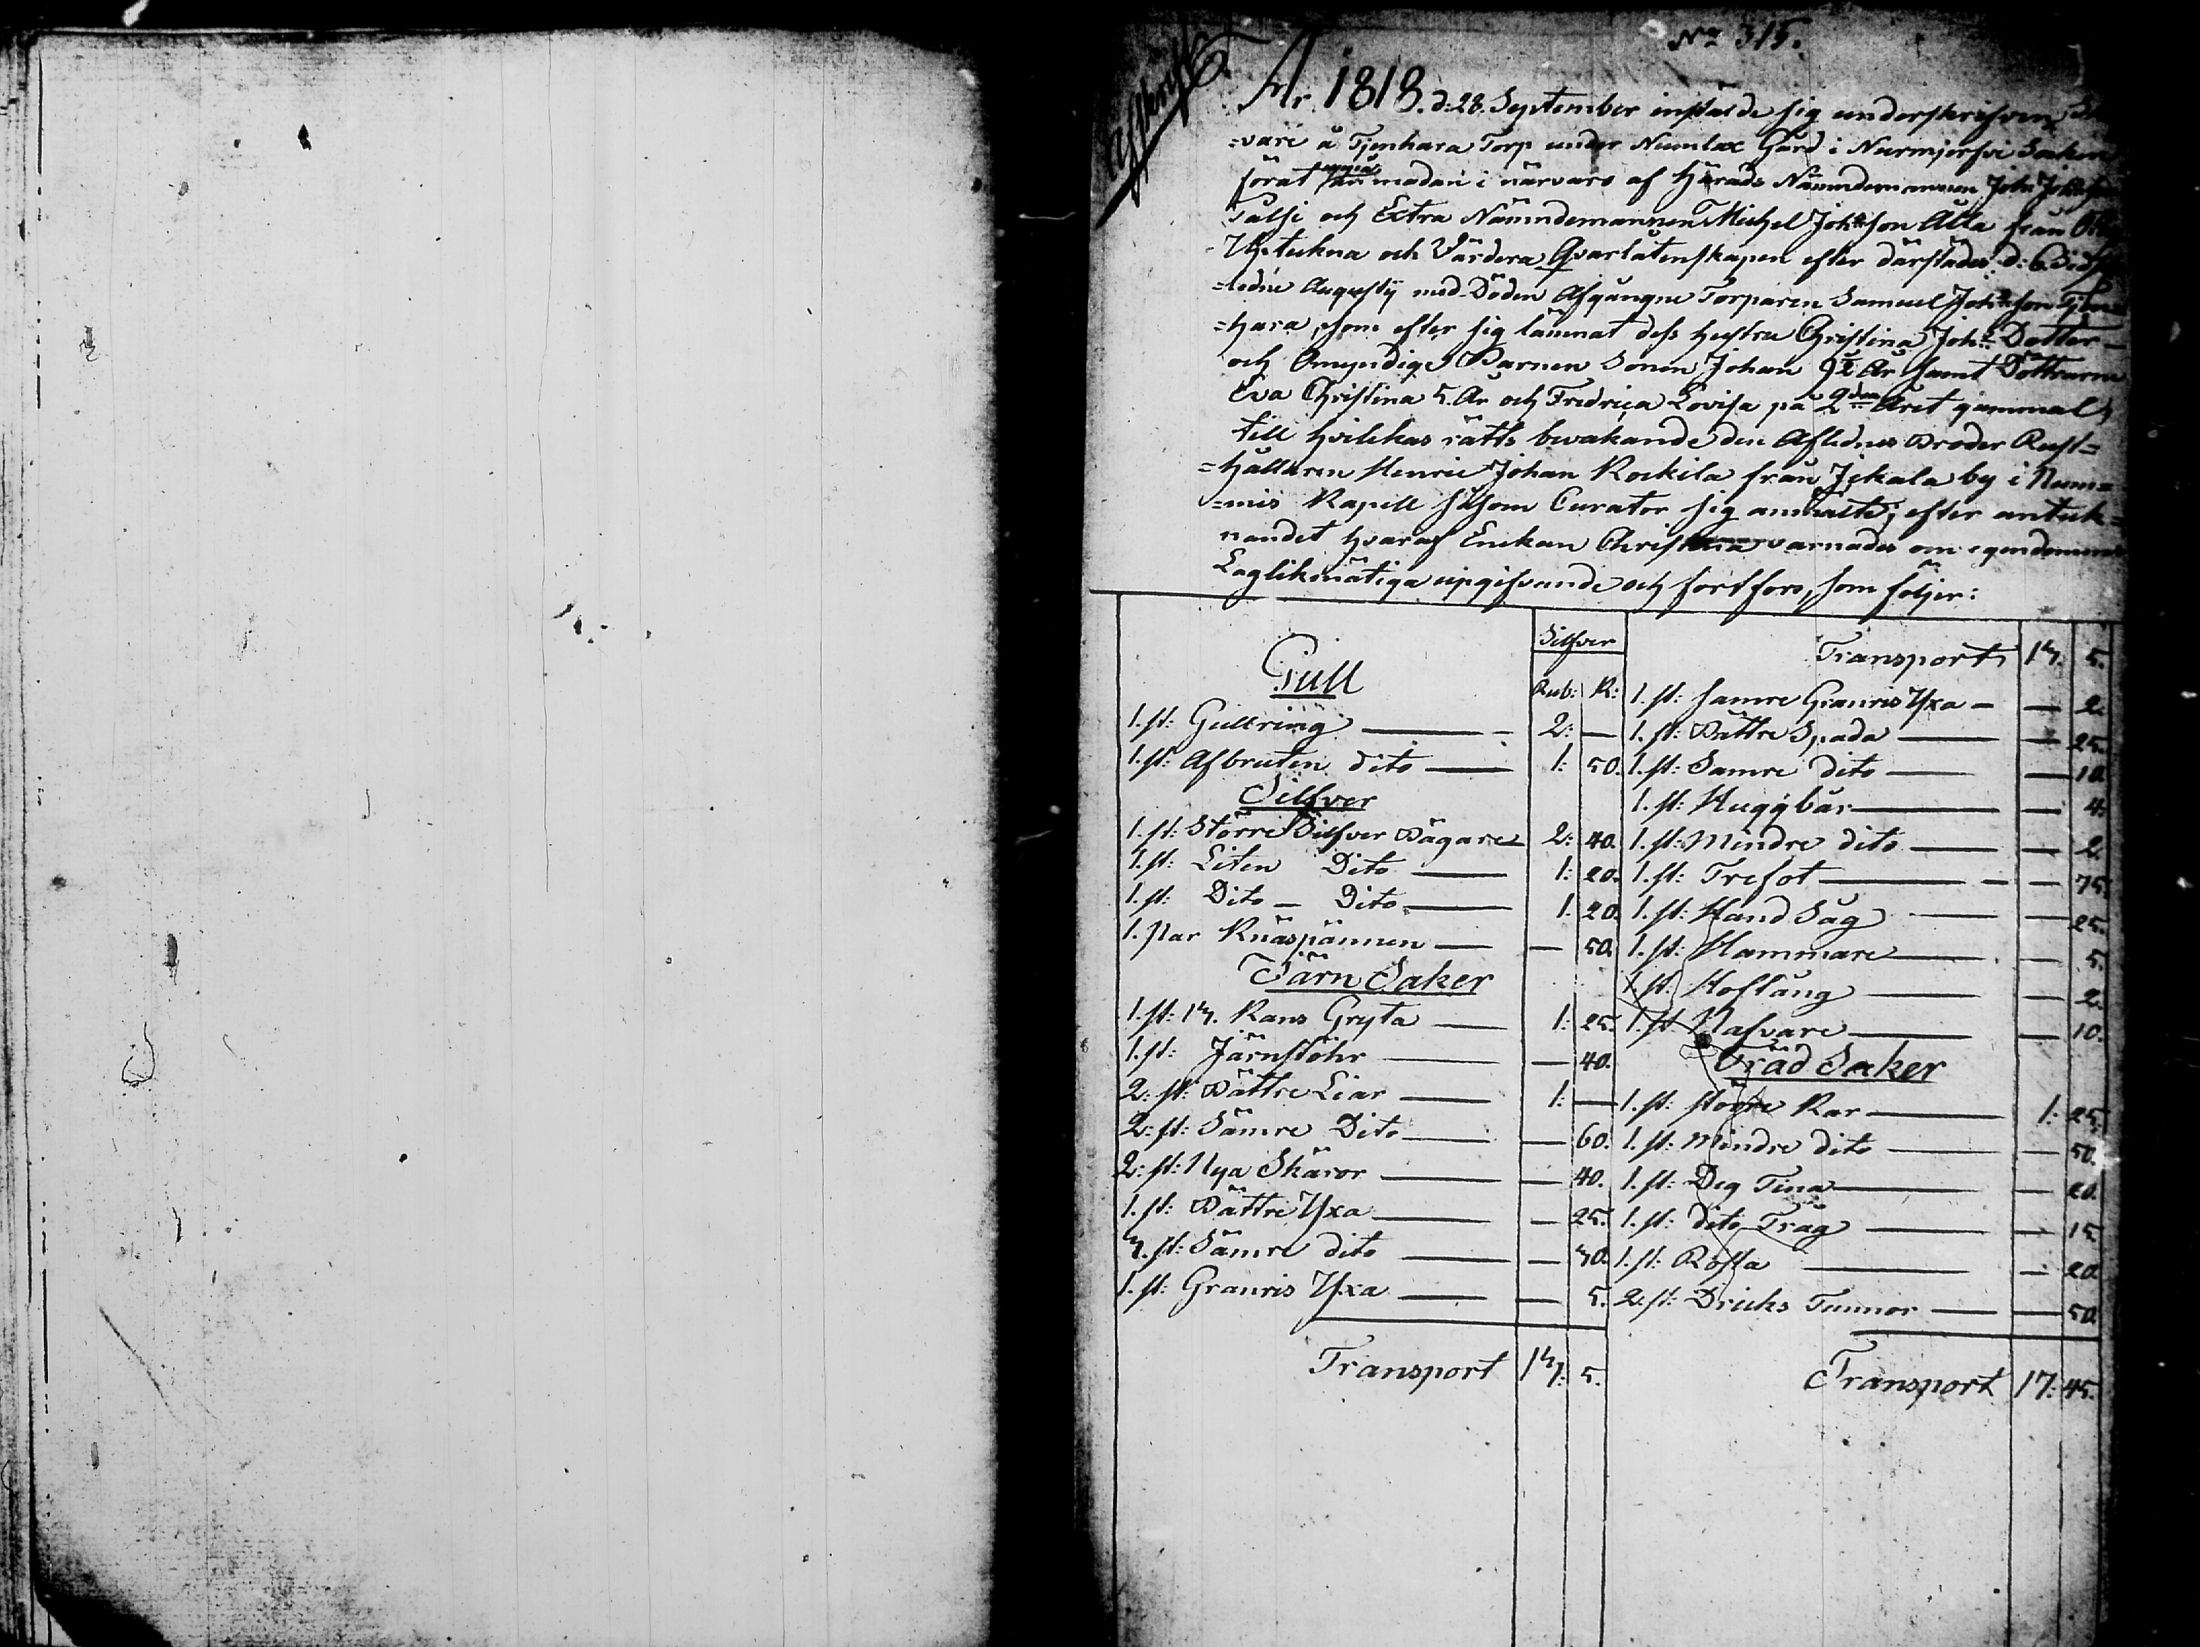 No 315.
Afskrift
År 1818. d: 28. September instälde sig underskrifven
=vare å Tjenhara Torp under Numlax Gård i Nurmjerfvi Socken
förat anmodan i närvaro af Härads Nämndemannen Joh: Johansson
Palsi och Extra Nämndemannen Michel Johsson Alla från
Upteckna och Värdera Qvarlåtenskapen efter därstädes d: 6. sidst-
=ledne Augusty med Döden Afgångne Torparen Samuel Johsson Tjen=
=hara, som efter sig lämnat dess hustru Christina Johs Dotter
och Omyndige Barnen Sonen Johan 9½ År samt Döttrarne
Eva Christina 5. År och Fredrica Lovisa på 2dra Året gammal,
till hvilkas rätts bevakande den Aflidnes Broder Rust=
=hållaren Henric Johan Rockila från Jckala by i Num=
=mis Kapell såsom Curator sig anmälte; efter anteck=
nandet hvaraf Enckan Christina varnades om egendomens
Laglikmätiga upgifvande och fortfors, som följer:
Silfver
Gull Rub: K:
1. st: Gullring 2: —
1. st: Afbruten dito 1: 50.
Silfver
1. st: Större Silfver Bägare 2: 40.
1. st: Liten Dito 1: 20.
1. st: Dito Dito 1: 20.
1. Par Knäspännen — 50.
Järn Saker
1. st: 13. Kans Gryta 1: 25.
1. st: Järnstöhr — 40.
2: st: Bättre Liar 1: —
2: st: Sämre Dito — 60.
2: st: Nya Skäror — 40.
1. st: Bättre Yxa — 25.
3. st: Sämre dito — 30.
1. st: Granris Yxa — 5.
Transport 13: 5.
Transport 13. 5.
1. st: Samre Granris Yxa — 2.
1. st: Bättre Spada — 25.
1. st: Samre dito — 10.
1. st: Huggbår — 4.
1. st: Mindre dito — 2.
1. st: Trefot — 75.
1. st: Hand Såg — 25.
1. st: Hammare — 5.
1. st: Hoftång — 2.
1. st: Nafvare — 10.
Träd Saker
1. st: större Kar 1: 25.
1. st: Mindre dito — 50.
1. st: Deg Tina — 20.
1. st: dito Tråg — 15.
1. st: Rosla — 20.
2. st: Dricks Tunnor — 50.
Transport 17: 45.